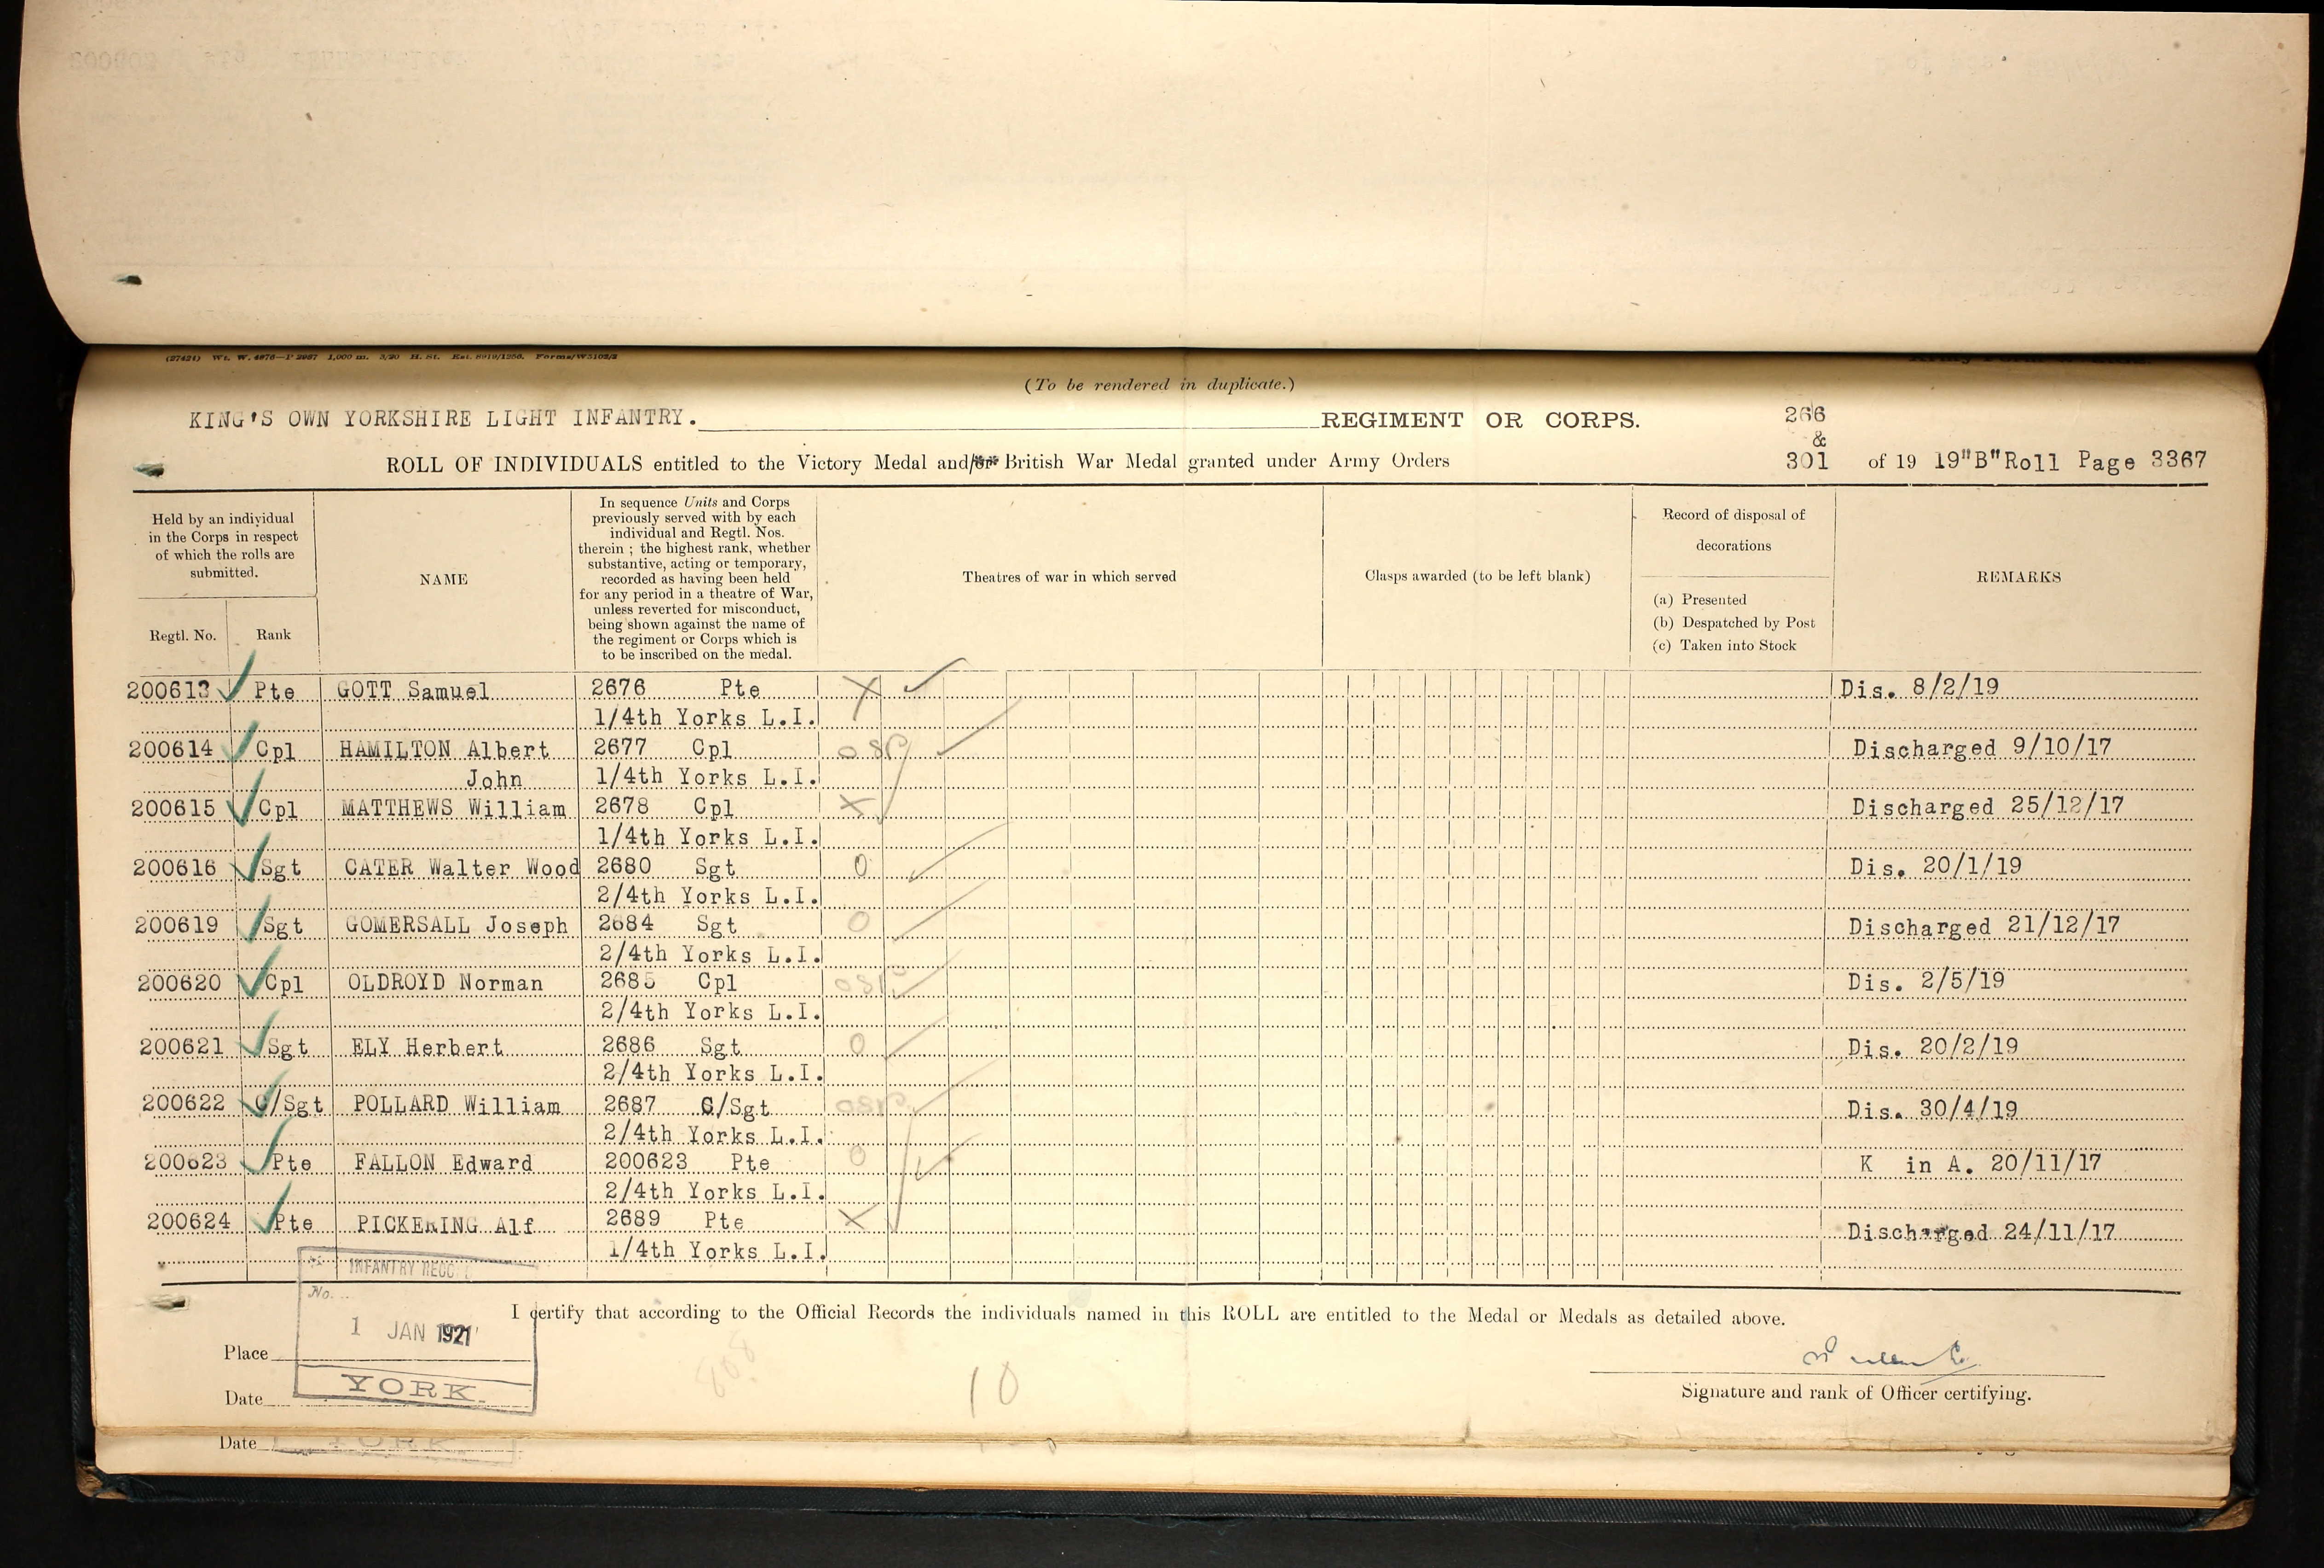 (27424) Wt. W. 4876—P 2987 1,000 m. 3/20 H. St.
(To be rendered in duplicate.)
KING'S OWN YORKSHIRE LIGHT INFANTRY. REGIMENT OR CORPS. 266
&
ROLL OF INDIVIDUALS entitled to the Victory Medal and/or British War Medal granted under Army Orders 301 of 19 19"B"Roll Page 3367
Held by an individual
in the Corps in respect
of which the rolls are
submitted.
Regtl. No. Rank
NAME
In sequence Units and Corps
previously served with by each
individual and Regtl. Nos.
therein ; the highest rank, whether
substantive, acting or temporary,
recorded as having been held
for any period in a theatre of War,
unless reverted for misconduct,
being shown against the name of
the regiment or Corps which is
to be inscribed on the medal.
Theatres of war in which served
Clasps awarded (to be left blank)
Record of disposal of
decorations
(a) Presented
(b) Despatched by Post
(c) Taken into Stock
REMARKS
200613 Pte GOTT Samuel 2676 Pte X Dis. 8/2/19
1/4th Yorks L.I.
200614 Cpl HAMILTON Albert 2677 Cpl Discharged 9/10/17
John 1/4th Yorks L.I.
200615 Cpl MATTHEWS William 2678 Cpl X Discharged 25/12/17
1/4th Yorks L.I.
200616 Sgt CATER Walter Wood 2680 Sgt 0 Dis. 20/1/19
2/4th Yorks L.I.
200619 Sgt GOMERSALL Joseph 2684 Sgt 0 Discharged 21/12/17
2/4th Yorks L.I.
200620 Cpl OLDROYD Norman 2685 Cpl Dis. 2/5/19
2/4th Yorks L.I.
200621 Sgt ELY Herbert 2686 Sgt 0 Dis. 20/2/19
2/4th Yorks L.I.
200622 C/Sgt POLLARD William 2687 C/Sgt Dis. 30/4/19
2/4th Yorks L.I.
200623 Pte FALLON Edward 200623 Pte 0 K in A. 20/11/17
2/4th Yorks L.I.
200624 Pte PICKERING Alf 2689 Pte X Discharged 24/11/17
1/4th Yorks L.I.
INFANTRY RECO
No.
I certify that according to the Official Records the individuals named in this ROLL are entitled to the Medal or Medals as detailed above.
1 JAN 1921
Place
YORK.
Date
10
Signature and rank of Officer certifying.
Date